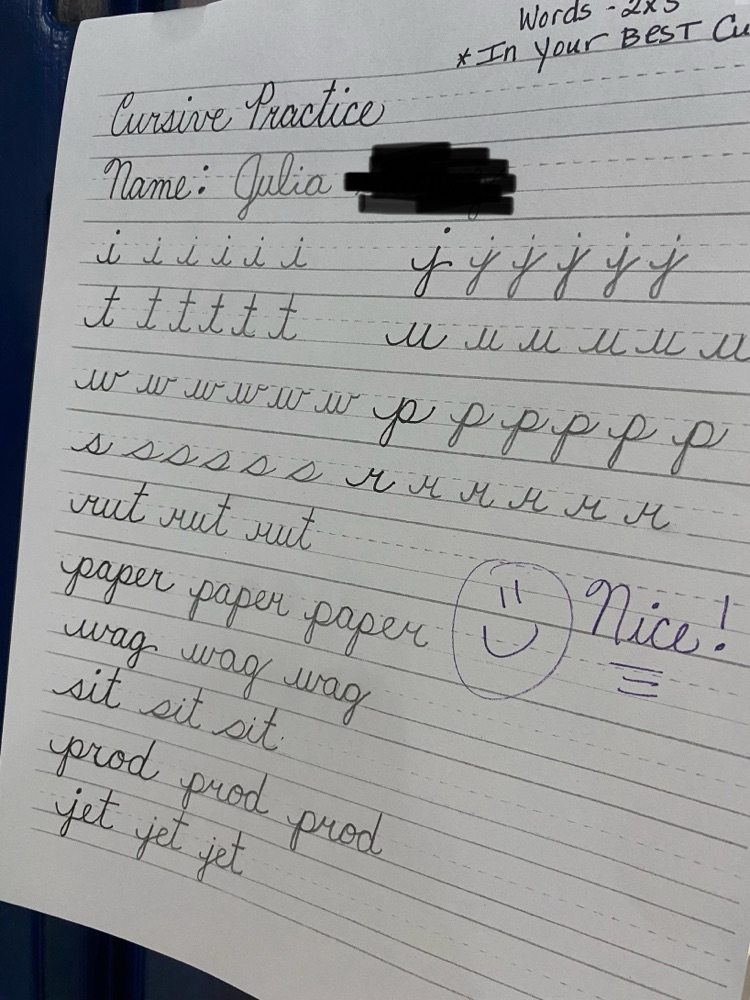 Words - 2x3
*In Your BEST Cu
Cursive Practice
Name: Julia
i i i i i i j j j j j j
t t t t t t u u u u u u
w w w w w w p p p p p p
s s s s s s r r r r r r
rut rut rut
paper paper paper
Nice!
wag wag wag
sit sit sit
prod prod prod
jet jet jet